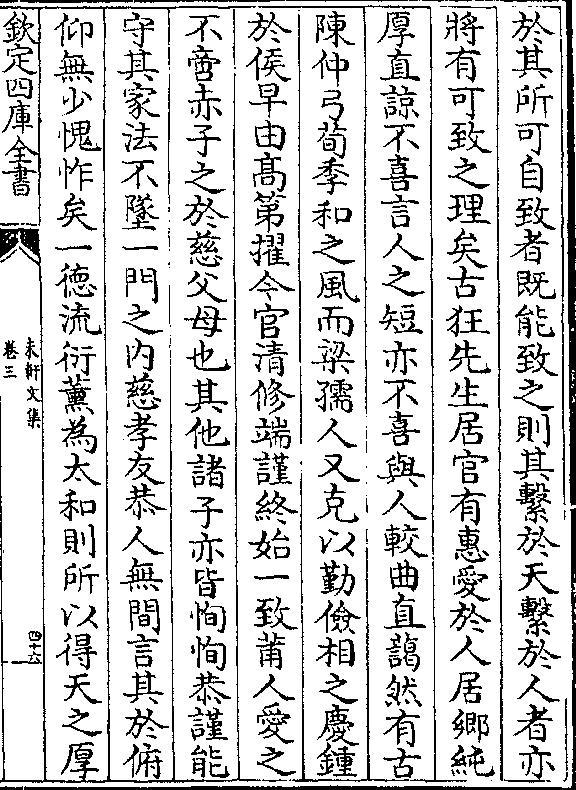 於其所可自致者既能致之則其繫於天繫於人者亦
將有可致之理矣古狂先生居官有惠愛於人居鄉純
厚直諒不喜言人之短亦不喜與人較曲直藹然有古
陳仲弓荀季和之風而梁孺人又克以勤儉相之慶鍾
於侯早由髙第擢今官清修端謹終始一致莆人愛之
不啻赤子之於慈父母也其他諸子亦皆恂恂恭謹能
守其家法不墜一門之内慈孝友恭人無間言其於俯
仰無少愧怍矣一德流衍薫為太和則所以得天之厚
欽定四庫全書
未軒文集
卷三
四十六